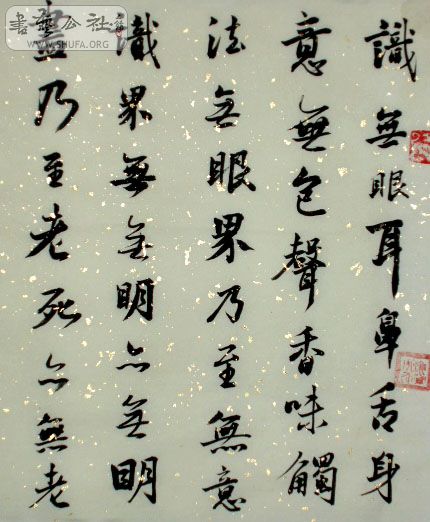 識無眼耳鼻舌身
意無色聲香味觸
法無眼界乃至無意
識界無無明亦無明
盡乃至老死亦無老
書藝公社
WWW.SHUFA.ORG